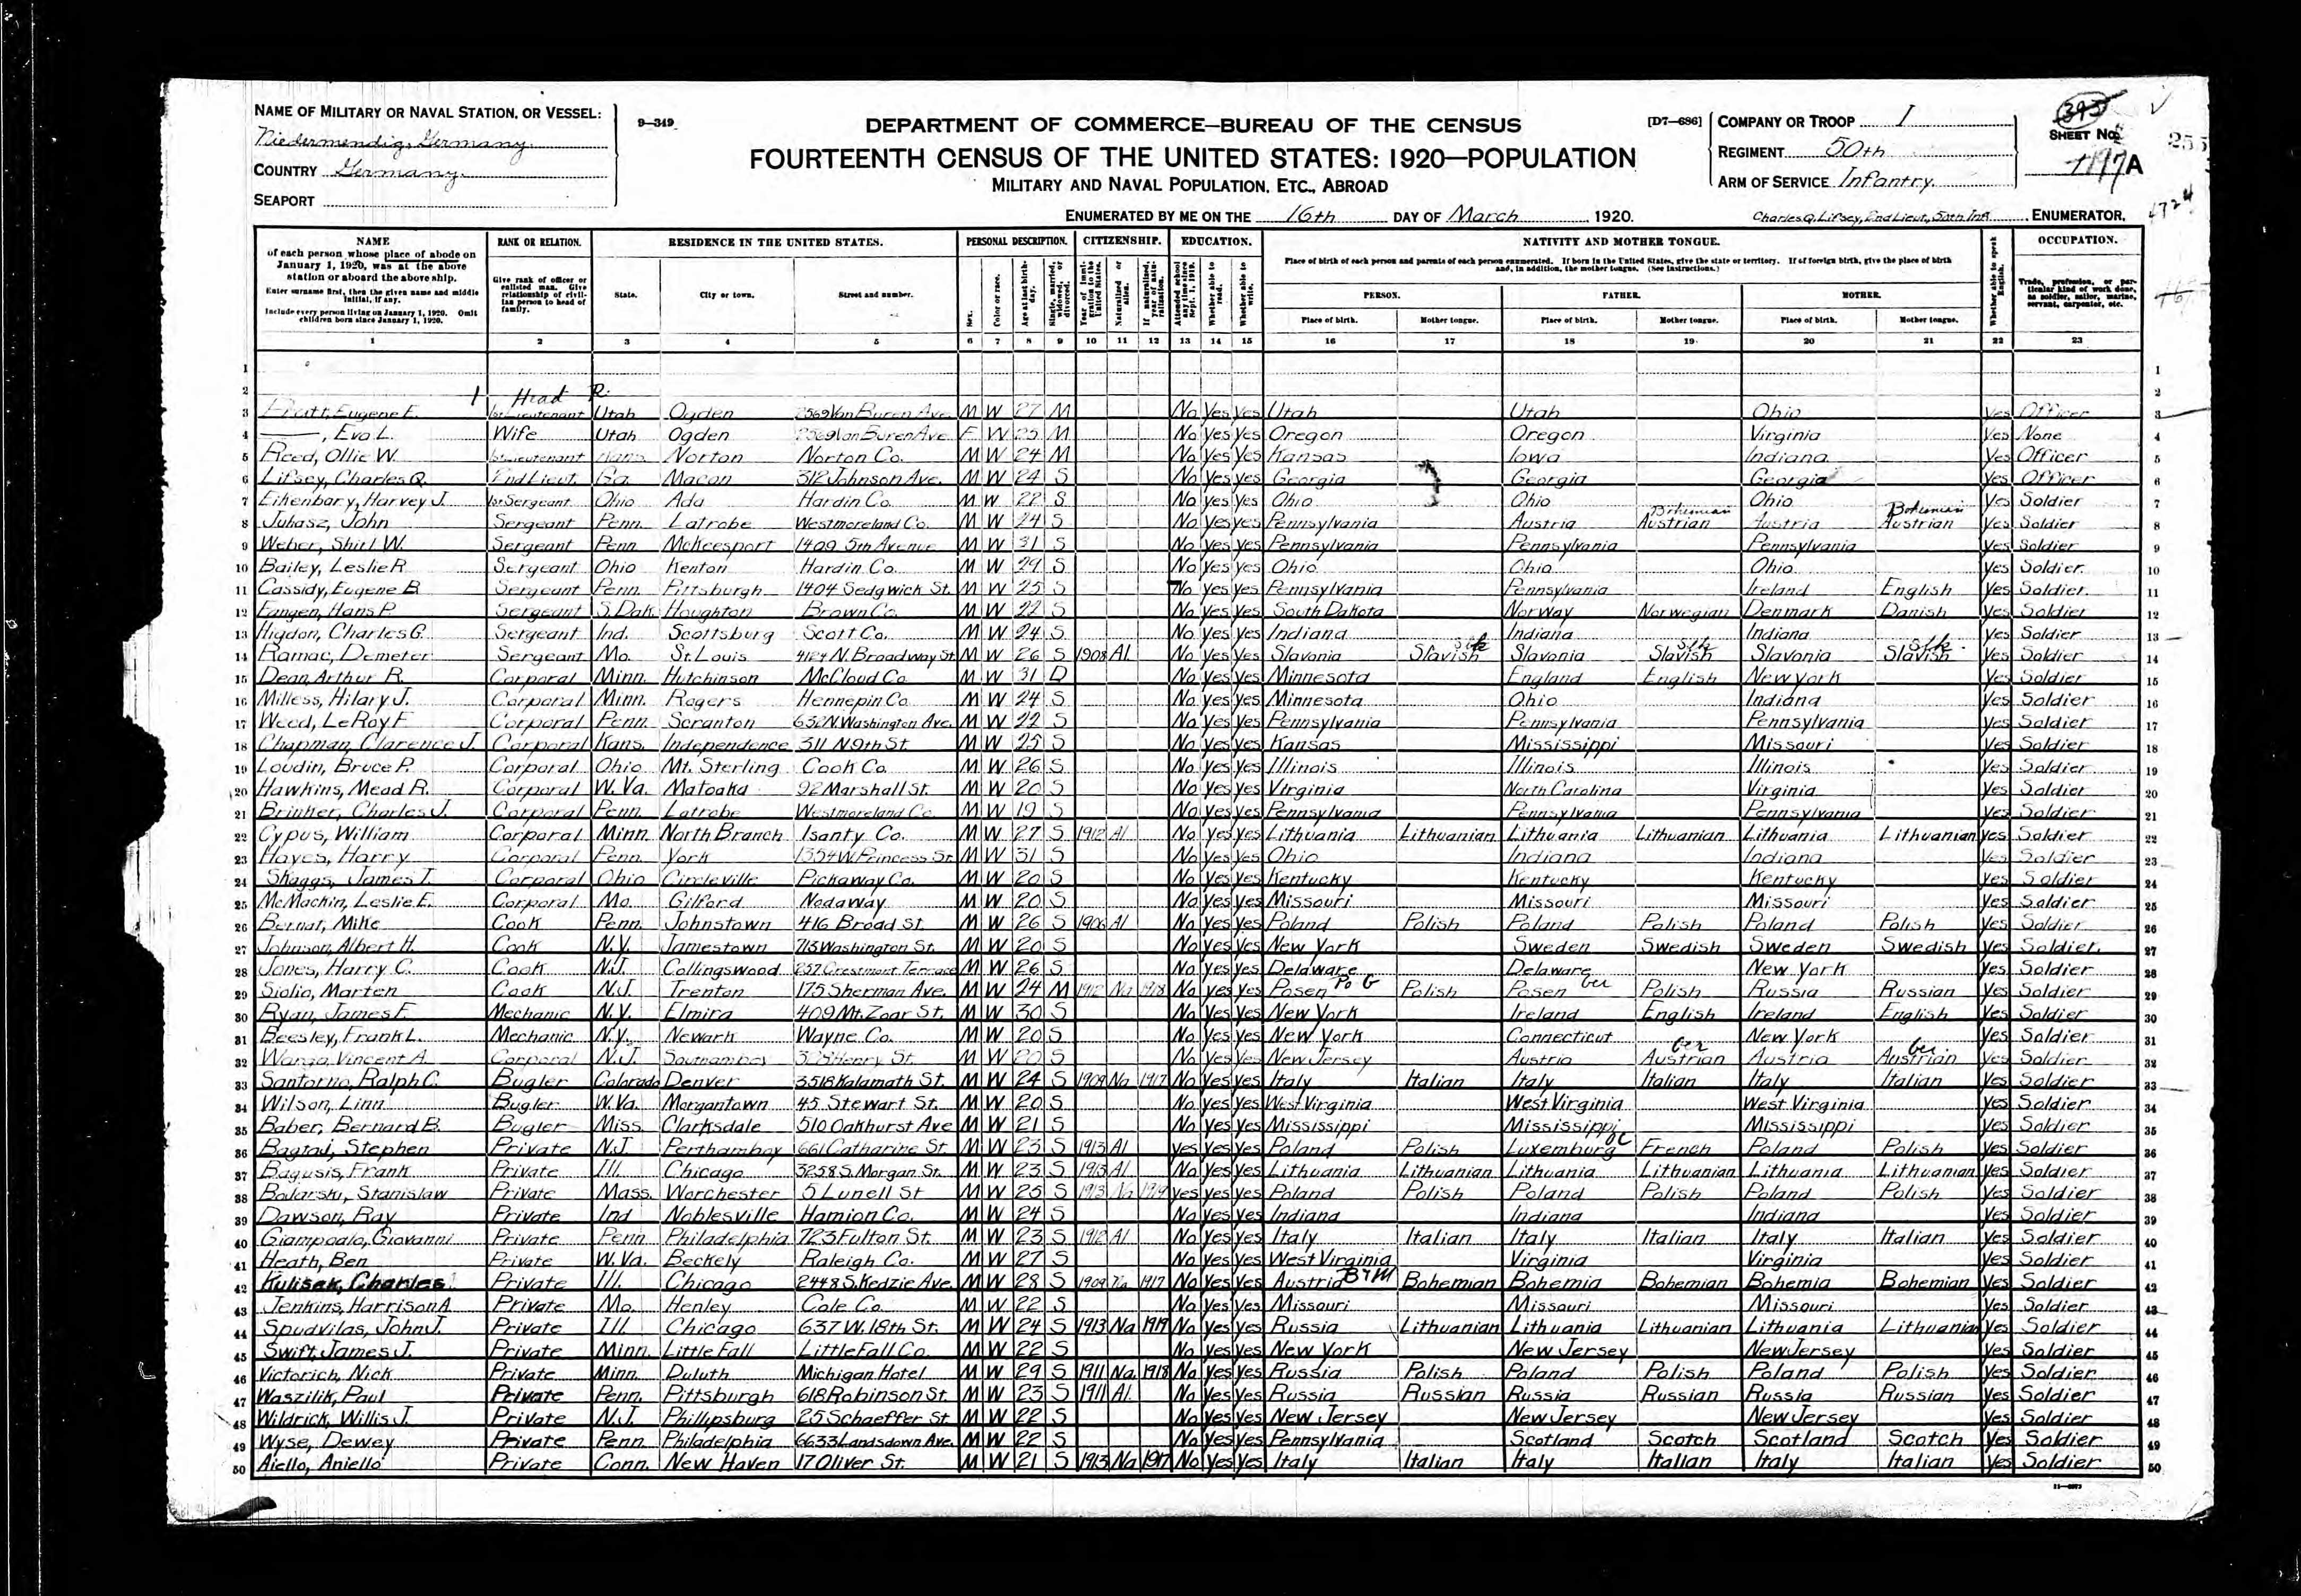 NAME OF MILITARY OR NAVAL STATION, OR VESSEL:
Niedermendig, Germany.
COUNTRY Germany.
SEAPORT
9—349
DEPARTMENT OF COMMERCE—BUREAU OF THE CENSUS
FOURTEENTH CENSUS OF THE UNITED STATES: 1920—POPULATION
MILITARY AND NAVAL POPULATION, ETC., ABROAD
[D7—686]
COMPANY OR TROOP I
REGIMENT 50th
ARM OF SERVICE Infantry.
395
SHEET NO.
A
255
ENUMERATED BY ME ON THE 16th DAY OF March, 1920. Charles Q. Lifsey, 2nd Lieut., 50th Inf. ENUMERATOR.
NAME of each person whose place of abode on January 1, 1920, was at the above station or aboard the above ship.
Enter surname first, then the given name and middle initial, if any.
Include every person living on January 1, 1920. Omit children born since January 1, 1920.
RANK OR RELATION.
Give rank of officer or enlisted man. Give relationship of civilian person to head of family.
RESIDENCE IN THE UNITED STATES.
State. City or town. Street and number.
PERSONAL DESCRIPTION.
Sex. Color or race. Age at last birthday. Single, married, widowed, or divorced.
CITIZENSHIP.
Year of immigration to the United States. Naturalized or alien. If naturalized, year of naturalization.
EDUCATION.
Attended school any time since Sept. 1, 1919. Whether able to read. Whether able to write.
NATIVITY AND MOTHER TONGUE.
Place of birth of each person and parents of each person enumerated. If born in the United States, give the state or territory. If of foreign birth, give the place of birth and, in addition, the mother tongue. (See instructions.)
PERSON. FATHER. MOTHER.
Place of birth. Mother tongue. Place of birth. Mother tongue. Place of birth. Mother tongue.
Whether able to speak English.
OCCUPATION.
Trade, profession, or particular kind of work done, as soldier, sailor, marine, servant, carpenter, etc.
1 2 3 4 5 6 7 8 9 10 11 12 13 14 15 16 17 18 19 20 21 22 23
1 1
2 1 Head R. 2
3 Pratt, Eugene E. 1st Lieutenant Utah Ogden 2569 Van Buren Ave. M W 27 M No Yes Yes Utah Utah Ohio Yes Officer 3
4 ——, Eva L. Wife Utah Ogden 2569 Van Buren Ave. F W 25 M No Yes Yes Oregon Oregon Virginia Yes None 4
5 Reed, Ollie W. 1st Lieutenant Kans. Norton Norton Co. M W 24 M No Yes Yes Kansas Iowa Indiana Yes Officer 5
6 Lifsey, Charles Q. 2nd Lieut. Ga. Macon 312 Johnson Ave. M W 24 S No Yes Yes Georgia Georgia Georgia Yes Officer 6
7 Eikenbary, Harvey J. 1st Sergeant Ohio Ada Hardin Co. M W 22 S No Yes Yes Ohio Ohio Ohio Yes Soldier 7
8 Juhasz, John Sergeant Penn. Latrobe Westmoreland Co. M W 24 S No Yes Yes Pennsylvania Austria Bohemian Austrian Austria Bohemian Austrian Yes Soldier 8
9 Weber, Shirl W. Sergeant Penn. McKeesport 1409 5th Avenue M W 31 S No Yes Yes Pennsylvania Pennsylvania Pennsylvania Yes Soldier 9
10 Bailey, Leslie R. Sergeant Ohio Kenton Hardin Co. M W 29 S No Yes Yes Ohio Ohio Ohio Yes Soldier 10
11 Cassidy, Eugene B. Sergeant Penn. Pittsburgh 1404 Sedgwick St. M W 25 S No Yes Yes Pennsylvania Pennsylvania Ireland English Yes Soldier 11
12 Fangen, Hans P. Sergeant S. Dak. Houghton Brown Co. M W 22 S No Yes Yes South Dakota Norway Norwegian Denmark Danish Yes Soldier 12
13 Higdon, Charles G. Sergeant Ind. Scottsburg Scott Co. M W 24 S No Yes Yes Indiana Indiana Indiana Yes Soldier 13
14 Ramac, Demeter Sergeant Mo. St. Louis 4124 N. Broadway St. M W 26 S 1908 Al. No Yes Yes Slavonia Slavish Slavonia Slavish Slavonia Slavish Yes Soldier 14
15 Dean, Arthur R. Corporal Minn. Hutchinson McCloud Co. M W 31 D No Yes Yes Minnesota England English New York Yes Soldier 15
16 Milless, Hilary J. Corporal Minn. Rogers Hennepin Co. M W 24 S No Yes Yes Minnesota Ohio Indiana Yes Soldier 16
17 Weed, LeRoy F. Corporal Penn. Scranton 632 N. Washington Ave. M W 22 S No Yes Yes Pennsylvania Pennsylvania Pennsylvania Yes Soldier 17
18 Chapman, Clarence J. Corporal Kans. Independence 311 N 9th St. M W 25 S No Yes Yes Kansas Mississippi Missouri Yes Soldier 18
19 Loudin, Bruce P. Corporal Ohio Mt. Sterling Cook Co. M W 26 S No Yes Yes Illinois Illinois Illinois Yes Soldier 19
20 Hawkins, Mead R. Corporal W. Va. Matoaka 92 Marshall St. M W 20 S No Yes Yes Virginia North Carolina Virginia Yes Soldier 20
21 Brinker, Charles J. Corporal Penn. Latrobe Westmoreland Co. M W 19 S No Yes Yes Pennsylvania Pennsylvania Pennsylvania Yes Soldier 21
22 Cypus, William Corporal Minn. North Branch Isanty Co. M W 27 S 1912 Al No Yes Yes Lithuania Lithuanian Lithuania Lithuanian Lithuania Lithuanian Yes Soldier 22
23 Hayes, Harry Corporal Penn. York 1354 W. Princess St. M W 31 S No Yes Yes Ohio Indiana Indiana Yes Soldier 23
24 Skaggs, James T. Corporal Ohio Circleville Pickaway Co. M W 20 S No Yes Yes Kentucky Kentucky Kentucky Yes Soldier 24
25 McMackin, Leslie E. Corporal Mo. Gilford Nodaway M W 20 S No Yes Yes Missouri Missouri Missouri Yes Soldier 25
26 Bernat, Mike Cook Penn. Johnstown 416 Broad St. M W 26 S 1906 Al No Yes Yes Poland Polish Poland Polish Poland Polish Yes Soldier 26
27 Johnson, Albert H. Cook N.Y. Jamestown 713 Washington St. M W 20 S No Yes Yes New York Sweden Swedish Sweden Swedish Yes Soldier 27
28 Jones, Harry C. Cook N.J. Collingswood 257 Crestmont Terrace M W 26 S No Yes Yes Delaware Delaware New York Yes Soldier 28
29 Siolio, Marten Cook N.J. Trenton 175 Sherman Ave. M W 24 M 1912 Na 1918 No Yes Yes Posen Po G Polish Posen Ger Polish Russia Russian Yes Soldier 29
30 Ryan, James F. Mechanic N.Y. Elmira 409 Mt. Zoar St. M W 30 S No Yes Yes New York Ireland English Ireland English Yes Soldier 30
31 Beesley, Frank L. Mechanic N.Y. Newark Wayne Co. M W 20 S No Yes Yes New York Connecticut New York Yes Soldier 31
32 Warga, Vincent A. Corporal N.J. Southamboy Henry St. M W 20 S No Yes Yes New Jersey Austria Ger Austrian Austria Ger Austrian Yes Soldier 32
33 Santorno, Ralph C. Bugler Colorado Denver 3518 Kalamath St. M W 24 S 1909 Na 1917 No Yes Yes Italy Italian Italy Italian Italy Italian Yes Soldier 33
34 Wilson, Linn Bugler W. Va. Morgantown 45 Stewart St. M W 20 S No Yes Yes West Virginia West Virginia West Virginia Yes Soldier 34
35 Baber, Bernard B. Bugler Miss. Clarksdale 510 Oakhurst Ave M W 21 S No Yes Yes Mississippi Mississippi Mississippi Yes Soldier 35
36 Bagtaj, Stephen Private N.J. Perthamboy 661 Catharine St. M W 23 S 1913 Al Yes Yes Yes Poland Polish Luxemburg French Poland Polish Yes Soldier 36
37 Bagusis, Frank Private Ill. Chicago 3258 S. Morgan St. M W 23 S 1913 Al No Yes Yes Lithuania Lithuanian Lithuania Lithuanian Lithuania Lithuanian Yes Soldier 37
38 Bodarski, Stanislaw Private Mass. Worchester 5 Lunell St M W 25 S 1913 Na 1919 Yes Yes Yes Poland Polish Poland Polish Poland Polish Yes Soldier 38
39 Dawson, Ray Private Ind. Noblesville Hamion Co. M W 24 S No Yes Yes Indiana Indiana Indiana Yes Soldier 39
40 Giampaolo, Giovanni Private Penn Philadelphia 723 Fulton St. M W 23 S 1912 Al No Yes Yes Italy Italian Italy Italian Italy Italian Yes Soldier 40
41 Heath, Ben Private W. Va. Beckely Raleigh Co. M W 27 S No Yes Yes West Virginia Virginia Virginia Yes Soldier 41
42 Kulisek, Charles Private Ill. Chicago 2448 S. Kedzie Ave. M W 28 S 1909 Na 1917 No Yes Yes Austria Bohemian Bohemia Bohemian Bohemia Bohemian Yes Soldier 42
43 Jenkins, Harrison A Private Mo. Henley Cole Co. M W 22 S No Yes Yes Missouri Missouri Missouri Yes Soldier 43
44 Spudvilas, John J. Private Ill. Chicago 637 W. 18th St. M W 24 S 1913 Na 1919 No Yes Yes Russia Lithuanian Lithuania Lithuanian Lithuania Lithuanian Yes Soldier 44
45 Swift, James J. Private Minn. Little Fall Little Fall Co. M W 22 S No Yes Yes New York New Jersey New Jersey Yes Soldier 45
46 Victorich, Nick Private Minn. Duluth Michigan Hotel M W 29 S 1911 Na. 1918 No Yes Yes Russia Polish Poland Polish Poland Polish Yes Soldier 46
47 Waszilik, Paul Private Penn. Pittsburgh 618 Robinson St. M W 23 S 1911 Al. No Yes Yes Russia Russian Russia Russian Russia Russian Yes Soldier 47
48 Wildrick, Willis J. Private N.J. Phillipsburg 25 Schaeffer St. M W 22 S No Yes Yes New Jersey New Jersey New Jersey Yes Soldier 48
49 Wyse, Dewey Private Penn. Philadelphia 6633 Landsdown Ave. M W 22 S No Yes Yes Pennsylvania Scotland Scotch Scotland Scotch Yes Soldier 49
50 Aiello, Aniello Private Conn. New Haven 17 Oliver St. M W 21 S 1913 Na 1917 No Yes Yes Italy Italian Italy Italian Italy Italian Yes Soldier 50